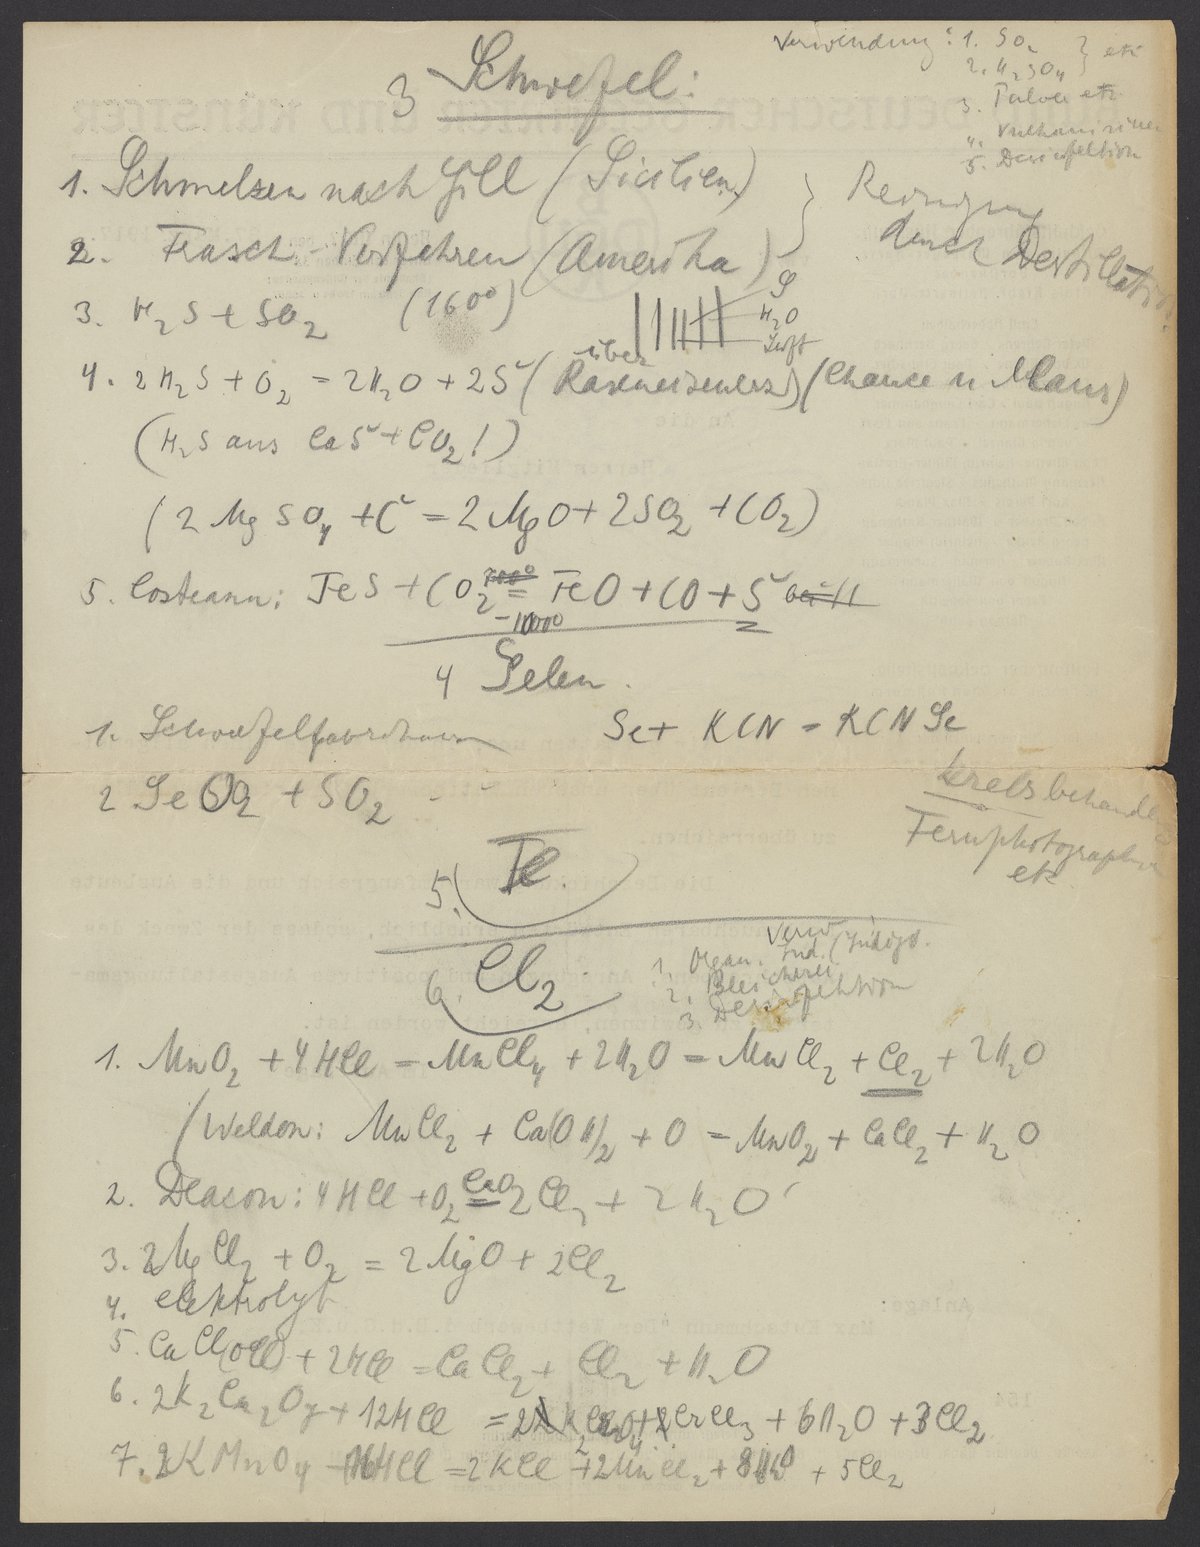 Verwendung: 1. SO2 } etc
2. H2SO4
3. Pulver etc
4. Vulkanisieren
5. Desinfektion
3 Schwefel:
1. Schmelzen nach Gill (Sicilien) } Reinigung
2. Frasch-Verfahren (Amerika) durch Destillation
3. H2S + SO2 (160°)
S
H2O
Luft
4. 2H2S + O2 = 2H2O + 2S (über Raseneisenerz) (Chance u Claus)
(H2S aus CaS + CO2!)
(2MgSO4 + C = 2MgO + 2SO2 + CO2)
5. Costeanu: FeS + CO2 = FeO + CO + S
-1000°
4 Selen.
1. Schwefelfabrikation Se + KCN = KCNSe
2 SeO2 + SO2 - -
Krebsbehandl
Fernphotographie
etc
5. Te
Verw
6. Cl2
1. Organ. Ind. (Indigo).
2. Bleicherei
3 Desinfektion
1. MnO2 + 4HCl = MnCl4 + 2H2O = MnCl2 + Cl2 + 2H2O
(Weldon: MnCl2 + Ca(OH)2 + O = MnO2 + CaCl2 + H2O
2. Deacon: 4HCl + O2 = 2Cl2 + 2H2O
3. 2MgCl2 + O2 = 2MgO + 2Cl2
4. elektrolyt
5. CaCl(OCl) + 2HCl = CaCl2 + Cl2 + H2O
6. 2K2Cr2O7 + 12HCl = 2CrCl3 + 6H2O + 3Cl2
7. 2KMnO4 16HCl = 2KCl + 2MnCl2 + 8H2O + 5Cl2